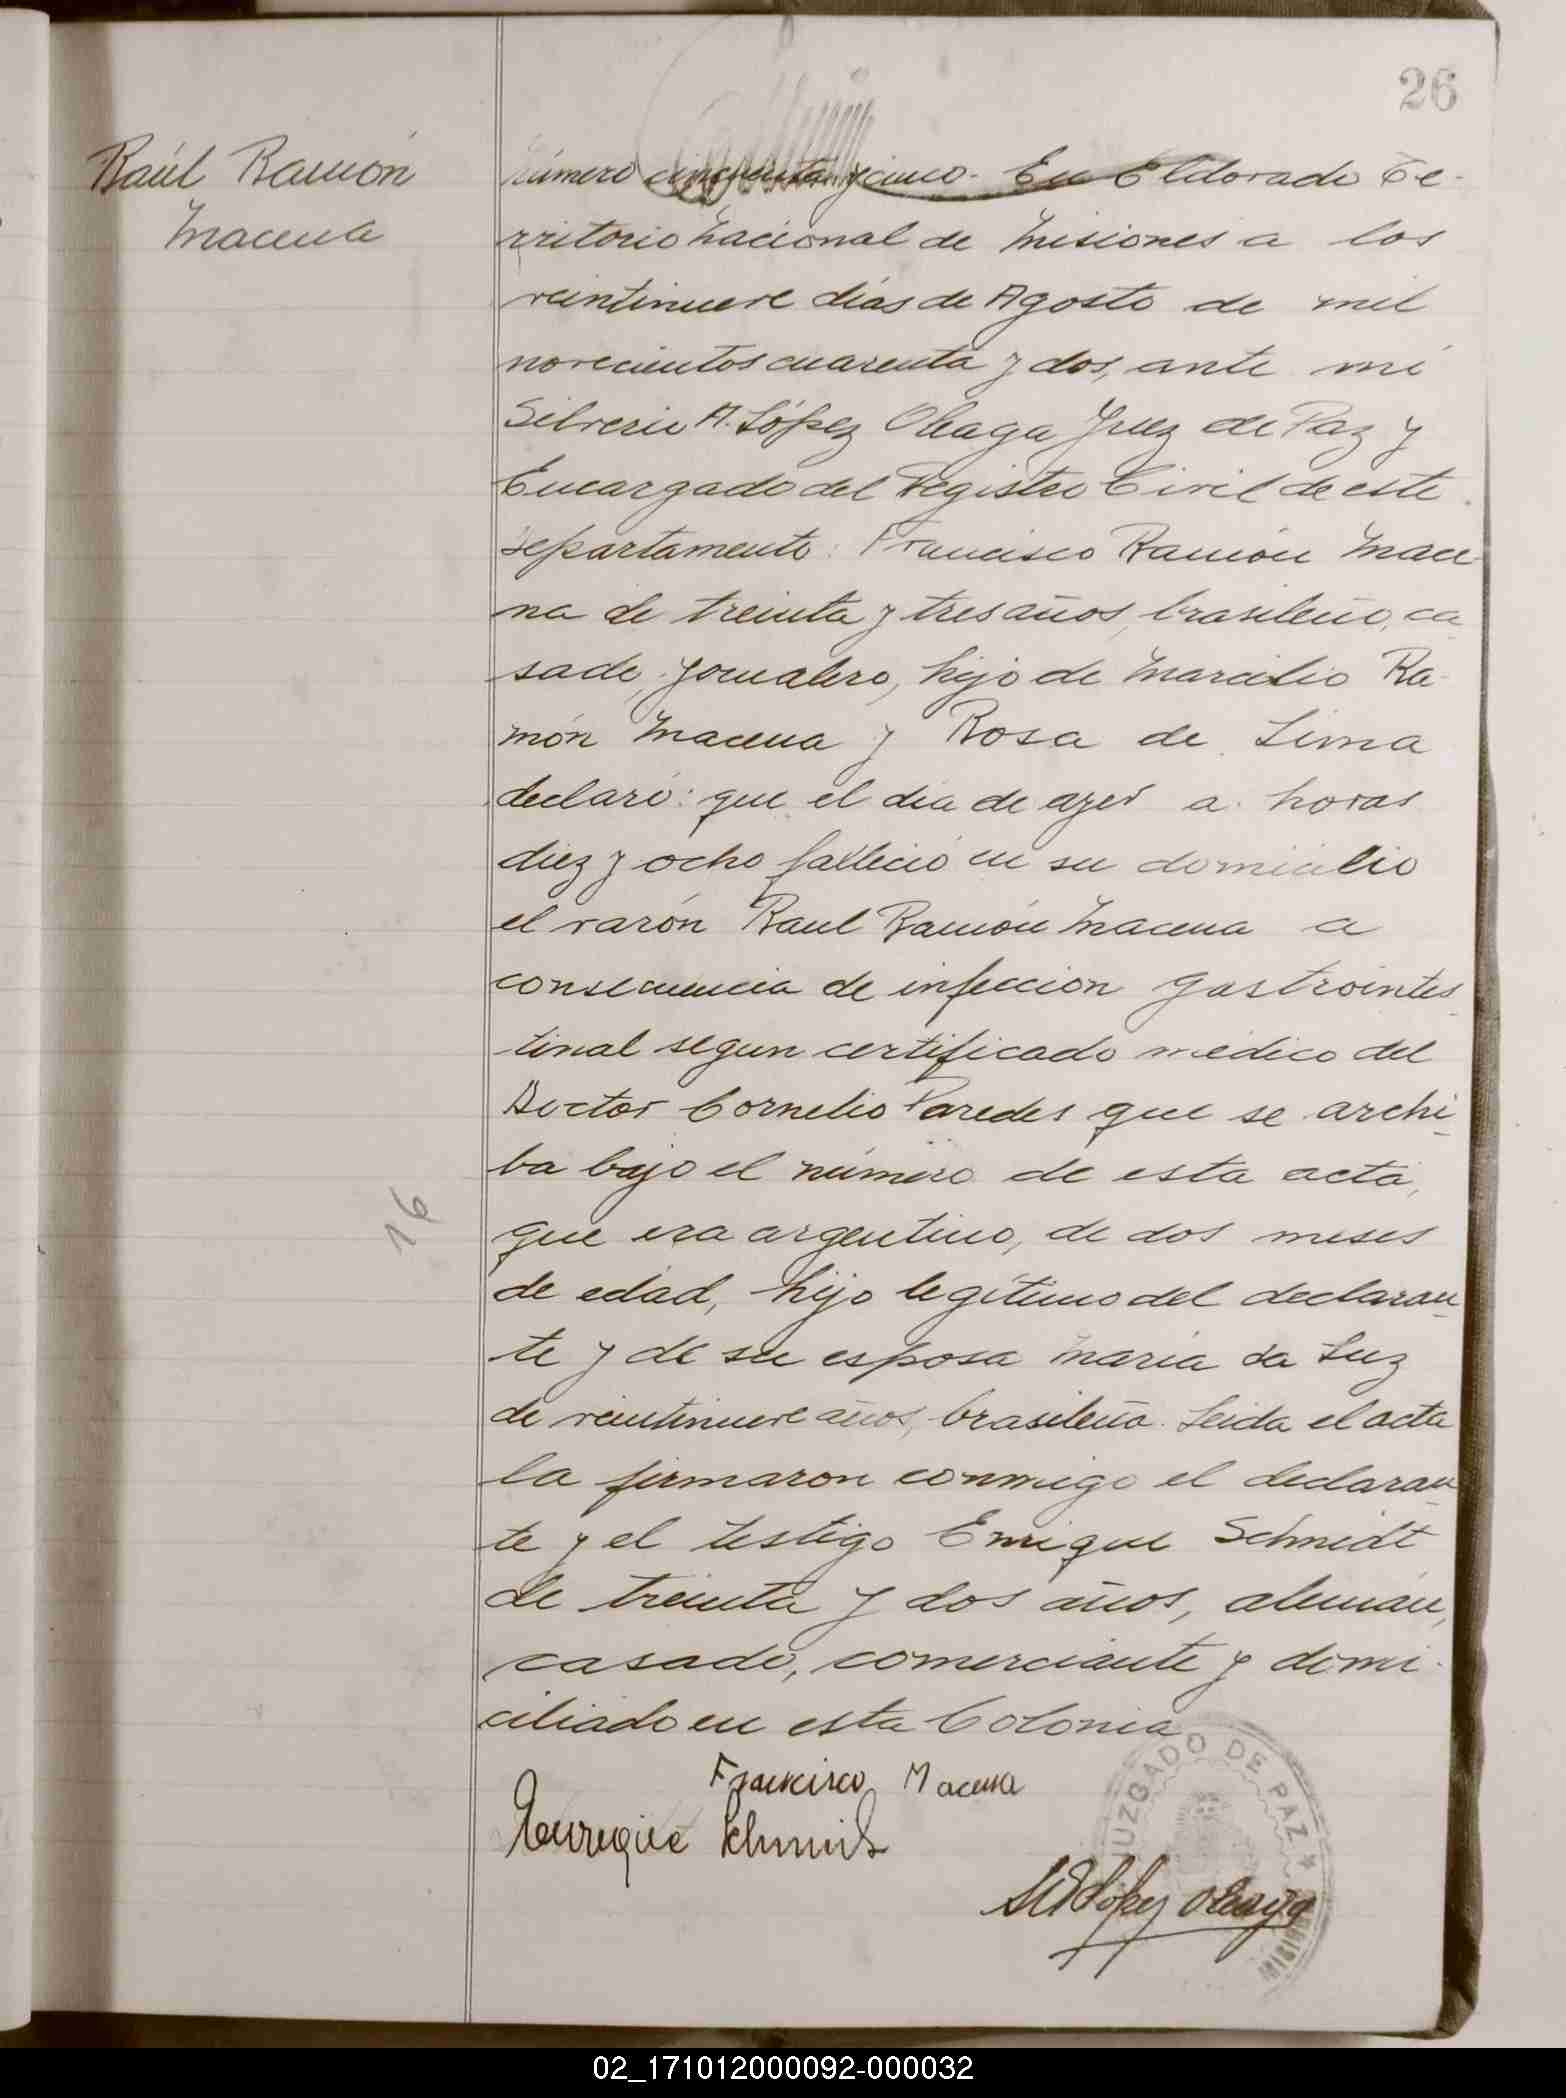 26
Raúl Ramón
Macena
Número cincuenta y cinco. En Eldorado Te-
rritorio Nacional de Misiones a los
veintinueve días de Agosto de mil
novecientos cuarenta y dos, ante mí
Silverio A. López Oleaga Juez de Paz y
Encargado del Registro Civil de este
Departamento: Francisco Ramón Mace-
na de treinta y tres años, brasileño, ca-
sado, jornalero, hijo de Marcilio Ra-
món Macena y Rosa de Lima
declaró: que el día de ayer a horas
diez y ocho falleció en su domicilio
el varón Raul Ramón Macena a
consecuencia de infeccion gastrointes-
tinal segun certificado médico del
Doctor Cornelio Paredes que se archi-
ba bajo el número de esta acta,
que era argentino, de dos meses
de edad, hijo legítimo del declaran-
te y de su esposa María da Luz
de veintinueve años, brasileña. Leida el acta
la firmaron conmigo el declaran-
te y el testigo Enrique Schmidt
de treinta y dos años, alemán,
casado, comerciante y domi-
ciliado en esta Colonia
16
Francisco Macena
JUZGADO DE PAZ
López Oleaga
02_171012000092-000032